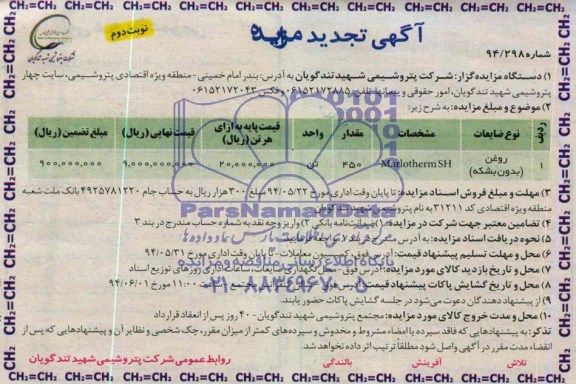 آگهی تجدید مزایده
نوبت دوم
شرکت پتروشیمی شهید تندگویان
شماره ۹۴/۲۹۸
۱) دستگاه مزایده گزار: شرکت پتروشیمی شهید تندگویان به آدرس: بندر امام خمینی - منطقه ویژه اقتصادی پتروشیمی، سایت چهار
پتروشیمی شهید تندگویان، امور حقوقی و پیمانها تلفن: ۰۶۱۵۲۱۷۲۸۸۵ و فکس ۰۶۱۵۲۱۷۲۰۴۳
۲) موضوع و مبلغ مزایده: به شرح زیر:
ردیف نوع ضایعات مشخصات مقدار واحد قیمت پایه به ازای هر تن (ریال) قیمت نهایی (ریال) مبلغ تضمین (ریال)
۱ روغن (بدون بشکه) Marlotherm SH ۴۵۰ تن ۲۰,۰۰۰,۰۰۰ ۹,۰۰۰,۰۰۰,۰۰۰ ۹۰۰,۰۰۰,۰۰۰
۳) مهلت و مبلغ فروش اسناد مزایده: تا پایان وقت اداری مورخ ۹۴/۰۵/۲۲ مبلغ ۳۰۰ هزار ریال به حساب جام ۴۹۲۵۷۸۱۲۲۰ بانک ملت شعبه
منطقه ویژه اقتصادی کد ۳۱۲۱۱ به نام پتروشیمی شهید تندگویان
۴) تضامین معتبر جهت شرکت در مزایده: ۱) ضمانتنامه بانکی ۲) واریز وجه نقد به شماره حساب مندرج در بند ۳
۵) نحوه دریافت اسناد مزایده: به آدرس مندرج در بند ۱ مراجعه فرمایید.
۶) محل و مهلت تسلیم پیشنهاد قیمت: آدرس فوق، کمیسیون معاملات - تا پایان وقت اداری مورخ ۹۴/۰۵/۳۱
۷) محل و تاریخ بازدید کالای مورد مزایده: آدرس فوق - محل نگهداری ضایعات، ساعات اداری روزهای توزیع اسناد
۸) محل و تاریخ گشایش پاکات پیشنهاد قیمت: ساعت ۱۱:۰۰ مورخ ۹۴/۰۶/۰۱
۹) از پیشنهاد دهندگان دعوت می‌شود در جلسه گشایش پاکات حضور یابند.
۱۰) محل و مدت خروج کالای مورد مزایده: مجتمع پتروشیمی شهید تندگویان - ۴۰ روز پس از انعقاد قرارداد
تذکر: به پیشنهادهایی که فاقد سپرده یا امضاء مشروط و مخدوش و سپرده‌های کمتر از میزان مقرر، چک شخصی و نظایر آن و پیشنهادهایی که پس از
انقضاء مدت مقرر در آگهی واصل شود مطلقاً ترتیب اثر داده نخواهد شد.
تلاش آفرینش بالندگی روابط عمومی شرکت پتروشیمی شهید تندگویان
ParsNamadData
پایگاه اطلاع رسانی مناقصه و مزایده
۰۲۱-۸۸۳۴۹۶۷۰-۵
CH₂=CH₂